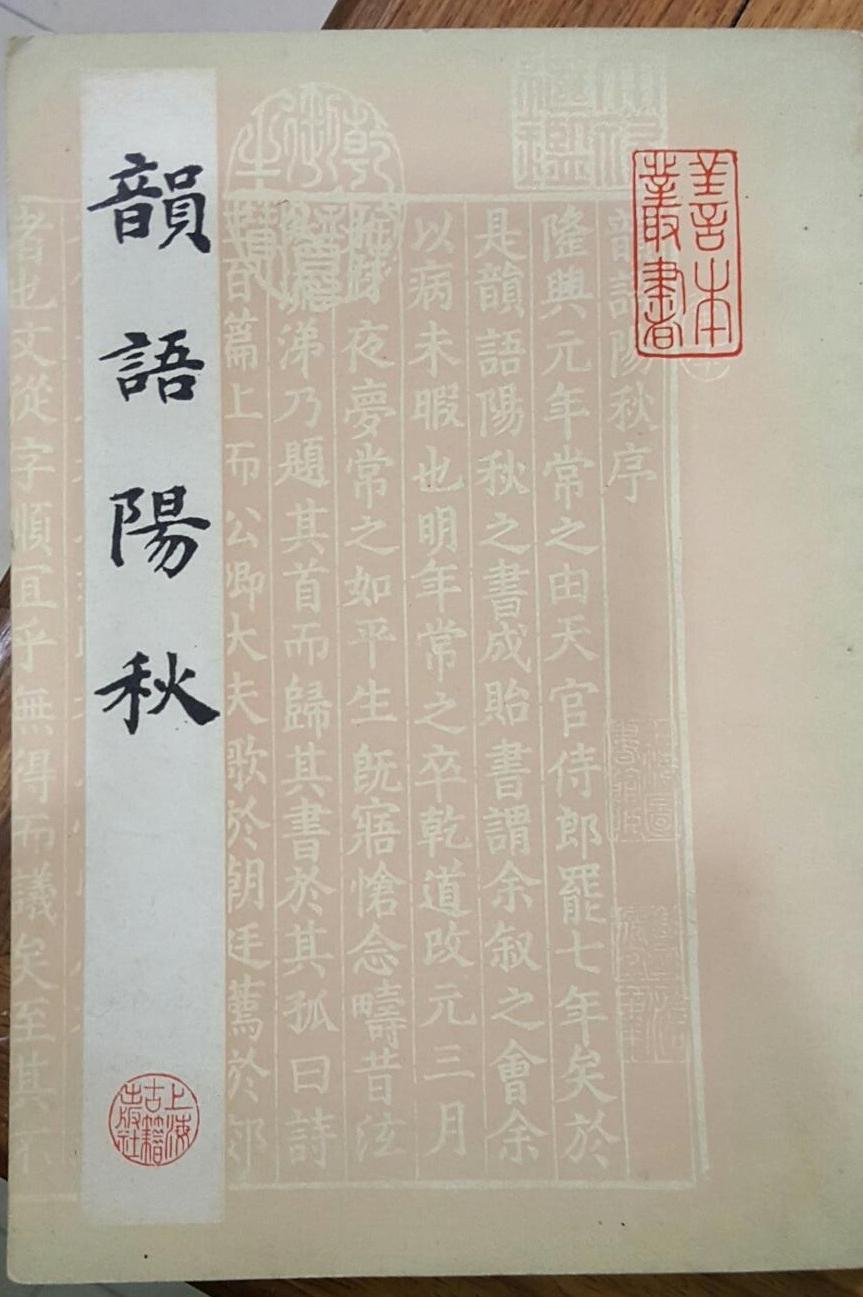 韻語陽秋
上海古籍出版社
善本叢書
韻語陽秋序
隆興元年常之由天官侍郎罷七年矣於
是韻語陽秋之書成貽書謂余叙之會余
以病未暇也明年常之卒乾道改元三月
夜夢常之如平生既寤愴念疇昔泫
涕乃題其首而歸其書於其孤曰詩
百篇上而公卿大夫歌於朝廷薦於郊
者也文從字順宜乎無得而議矣至其不